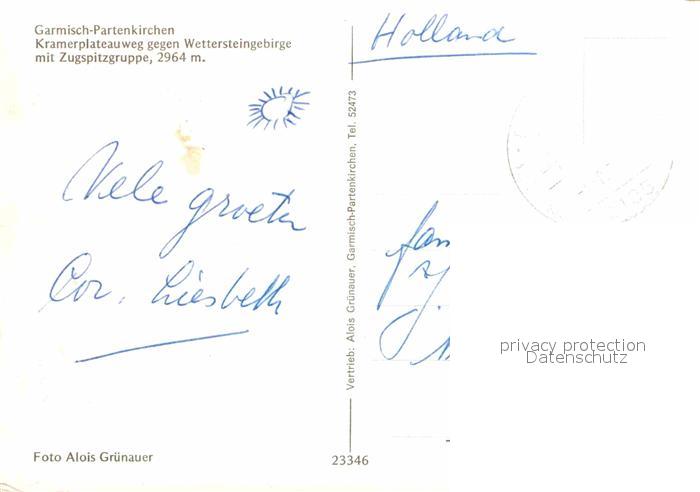 Garmisch-Partenkirchen
Kramerplateauweg gegen Wettersteingebirge
mit Zugspitzgruppe, 2964 m.
Vele groeten
Cor. Liesbeth
Foto Alois Grünauer
Vertrieb: Alois Grünauer, Garmisch-Partenkirchen, Tel. 52473
23346
Holland
fam
privacy protection
Datenschutz